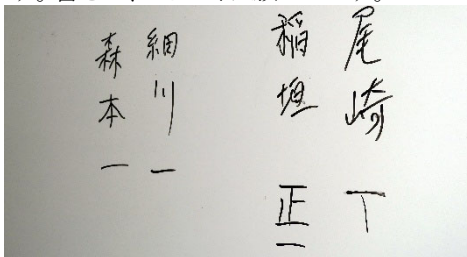 尾崎 丅
稲垣 正一
細川 一
森本 一